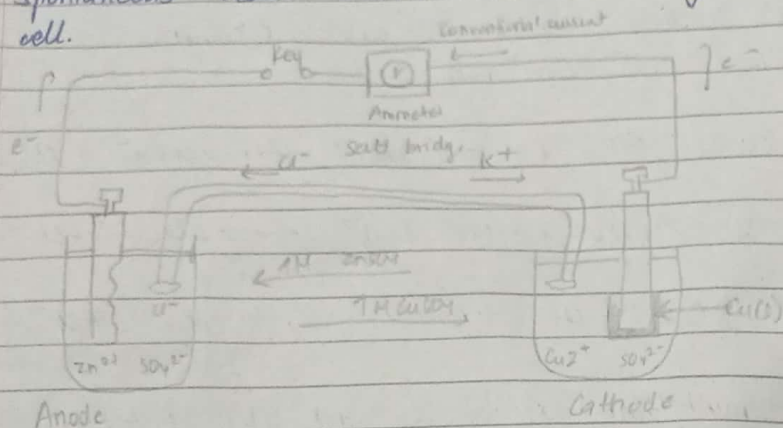 cell.
Conventional current
Key
e⁻
Ammeter
e⁻
Salt bridg.
Cl⁻
K⁺
1M ZnSO4
1M CuSO4
Cu(s)
Zn²⁺ SO4²⁻
Cu2⁺ SO4²⁻
Anode
Cathode